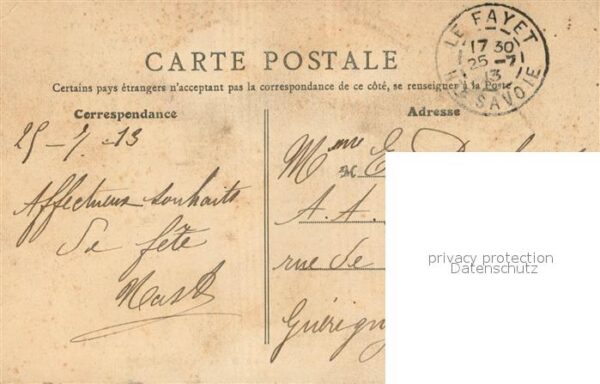 LE FAYET
17 30
25 -7
13
HTE SAVOIE
CARTE POSTALE
Certains pays étrangers n'acceptant pas la correspondance de ce côté, se renseigner à la Poste
Correspondance
Adresse
25-7-13
Affectueux souhaits
de fête
Mme E.
A. A.
rue de
Guérigny
privacy protection
Datenschutz